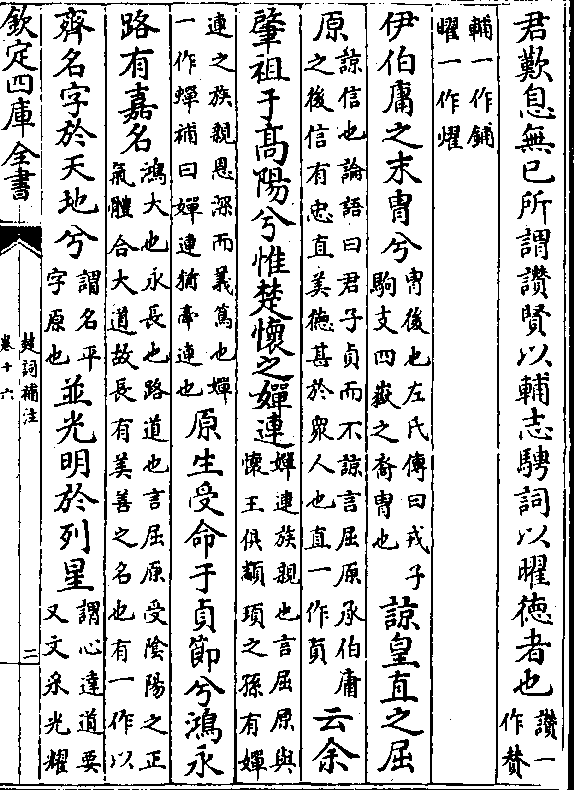 君歎息無已所謂讃賢以輔志騁詞以曜徳者也讃一作賛
輔一作鋪曜一作燿
伊伯庸之末胄兮胄後也左氏傳曰戎子駒支四嶽之裔胄也諒皇直之屈
原諒信也論語曰君子貞而不諒言屈原承伯庸之後信有忠直美徳甚於衆人也直一作貞云余
肇祖于髙陽兮惟楚懷之嬋連嬋連族親也言屈原與懷王俱顓頊之孫有嬋
連之族親恩深而義篤也嬋一作蟬補曰嬋連猶牽連也原生受命于貞節兮鴻永
路有嘉名鴻大也永長也路道也言屈原受陰陽之正氣體合大道故長有美善之名也有一作以
齊名字於天地兮謂名平字原也並光明於列星謂心達道要又文采光耀
欽定四庫全書
楚詞補注
卷十六
二